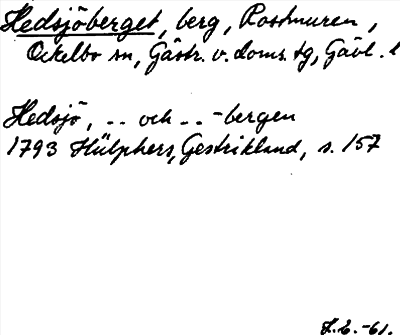 Hedsjöberget, berg, Rostmuren,
Ockelbo sn, Gästr. v. doms. tg, Gävl. l
Hedsjö, -- och -- -bergen
1793 Hülphers, Gestrikland, s. 157
L.-61.